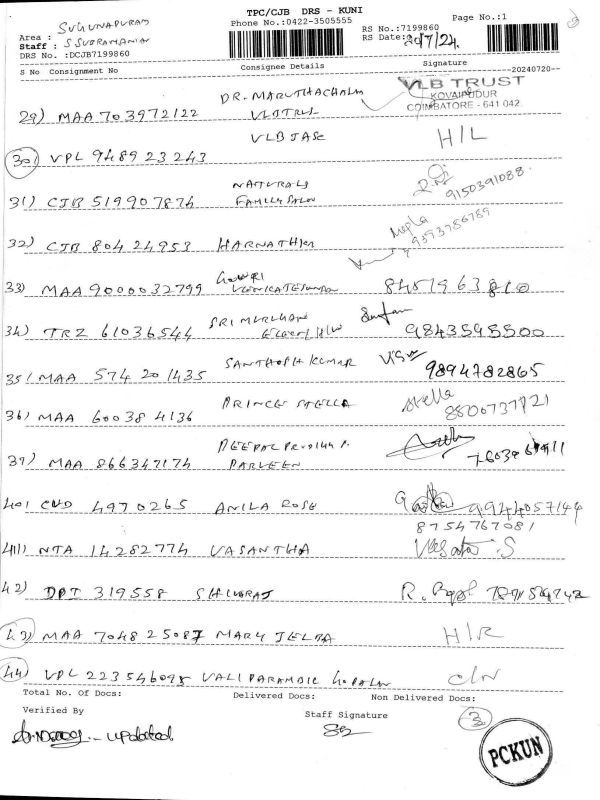 TPC/CJB DRS - KUNI
Phone No.:0422-3505555
Page No.:1
Area : SUGUNAPURAM
Staff : S SUBRAMANIAN
DRS No. :DCJB7199860
RS No.:7199860
RS Date: 20/7/24.
S No Consignment No Consignee Details Signature
20240720--
VLB TRUST
KOVAIPUDUR
COIMBATORE - 641 042.
29) MAA 703972122 DR. MARUTHACHALM
VLB TRUS
30) VPL 948923243 VLB JASC H/L
31) CJB 519907874 NATURALS
FAMILY SALON 9150391088
32) CJB 80424953 HARNATHKM
33) MAA 9000032799 GOWRI
VENKATESWARAN 8451963810
34) TRZ 61036544 SRI MURUGAN 9843595500
35) MAA 574201435 SANTHOSH KUMAR 9894782865
36) MAA 600384136 PRINCE STELLA Stella
8800737121
37) MAA 866347174 DEEPAL
PARVEEN
40) CUD 4970265 ANILA ROSE 9944057144
8754767081
41) NTA 14282774 VASANTHA Vasantha .S
42) DDT 319558 SHIVRAJ R.
43) MAA 704825087 MARY JELBA H/R
44) VPL 223546098 VALIPARAMBIL GOPALAN C/N
Total No. Of Docs: Delivered Docs: Non Delivered Docs:
3
Verified By Staff Signature
updated
PCKUN